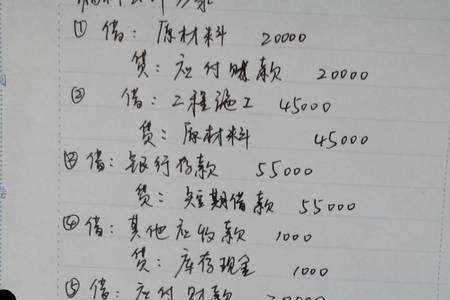 ① 借: 原材料 20000
贷: 应付账款 20000
② 借: 工程施工 45000
贷: 原材料 45000
③ 借: 银行存款 55000
贷: 短期借款 55000
④ 借: 其他应收款 1000
贷: 库存现金 1000
⑤ 借: 应付财款